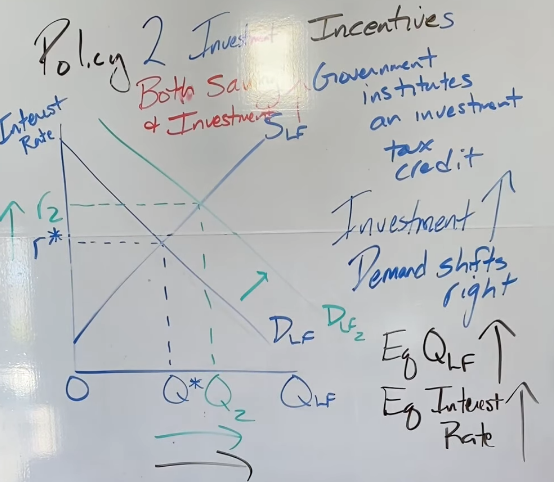 Policy 2 Investment Incentives
Both Saving
& Investment
Government
institutes
an investment
tax
credit
Interest
Rate
S_LF
r2
r*
Investment
Demand shfts
right
D_LF
D_LF2
Eq Q_LF
Eq Interest
Rate
O Q* Q2 Q_LF